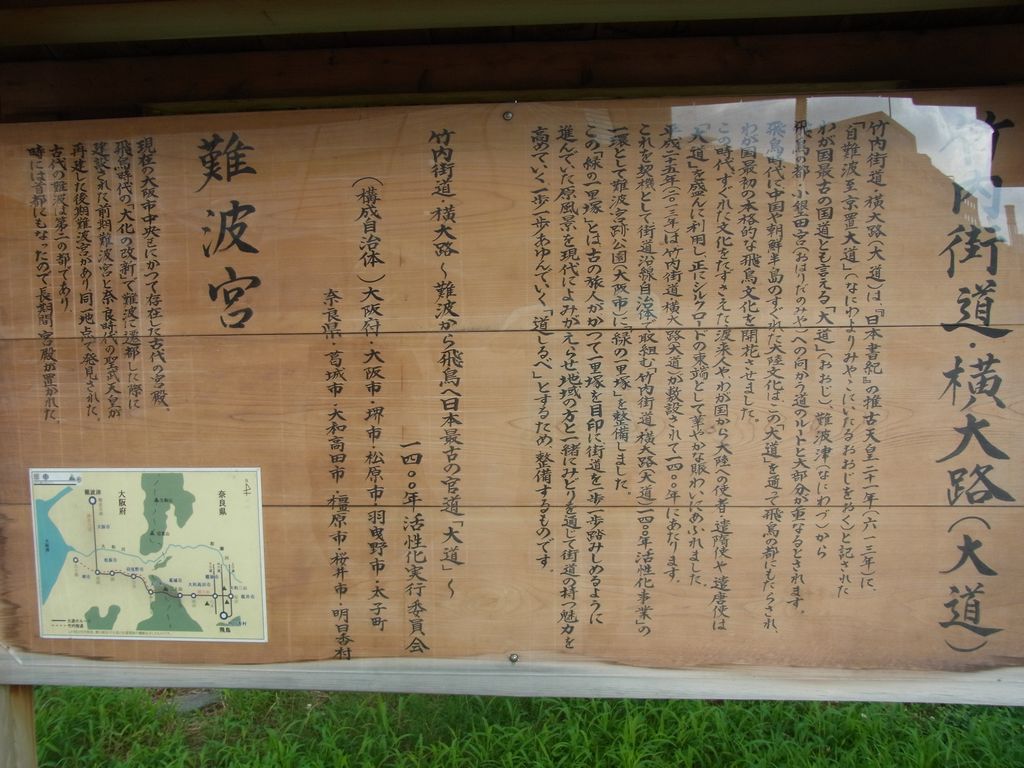 竹内街道・横大路(大道)
竹内街道・横大路(大道)は、『日本書紀』の推古天皇二十一年(六一三年)に、
「自難波至京置大道」(なにわよりみやこにいたるおおじをおく)と記された
わが国最古の国道とも言える「大道」(おおじ)、難波津(なにわづ)から
飛鳥の都・小墾田宮(おはりだのみや)への向かう道のルートと大部分が重なるとされます。
飛鳥時代に中国や朝鮮半島のすぐれた大陸文化は、この「大道」を通って飛鳥の都にもたらされ、
わが国最初の本格的な飛鳥文化を開花させました。
この時代、すぐれた文化をたずさえた渡来人やわが国から大陸への使者・遣隋使や遣唐使は
「大道」を盛んに利用し、正にシルクロードの東端として華やかな賑わいにあふれました。
平成二五年(二〇一三年)は竹内街道・横大路(大道)が敷設されて一四〇〇年にあたります。
これを契機として街道沿線自治体で取組む「竹内街道・横大路(大道)一四〇〇年活性化事業」の
一環として難波宮跡公園(大阪市)に「緑の一里塚」を整備しました。
この「緑の一里塚」とは古の旅人がかつて一里塚を目印に街道を一歩一歩踏みしめるように
進んでいた原風景を現代によみがえらせ、地域の方と一緒にみどりを通じて街道の持つ魅力を
高めていく、一歩一歩あゆんでいく、「道しるべ」とするため、整備するものです。
竹内街道・横大路~難波から飛鳥へ日本最古の官道「大道」~
一四〇〇年活性化実行委員会
(構成自治体)大阪府・大阪市・堺市・松原市・羽曳野市・太子町
奈良県・葛城市・大和高田市・橿原市・桜井市・明日香村
難波宮
現在の大阪市中央区にかつて存在した古代の宮殿。
飛鳥時代の「大化の改新」で難波に遷都した際に
建設された前期難波宮と奈良時代の聖武天皇が
再建した後期難波宮があり、同一地点で発見された。
古代の難波は第二の都であり、
時には首都にもなったので長期間、宮殿が置かれた。
難波津
大阪府
奈良県
飛鳥